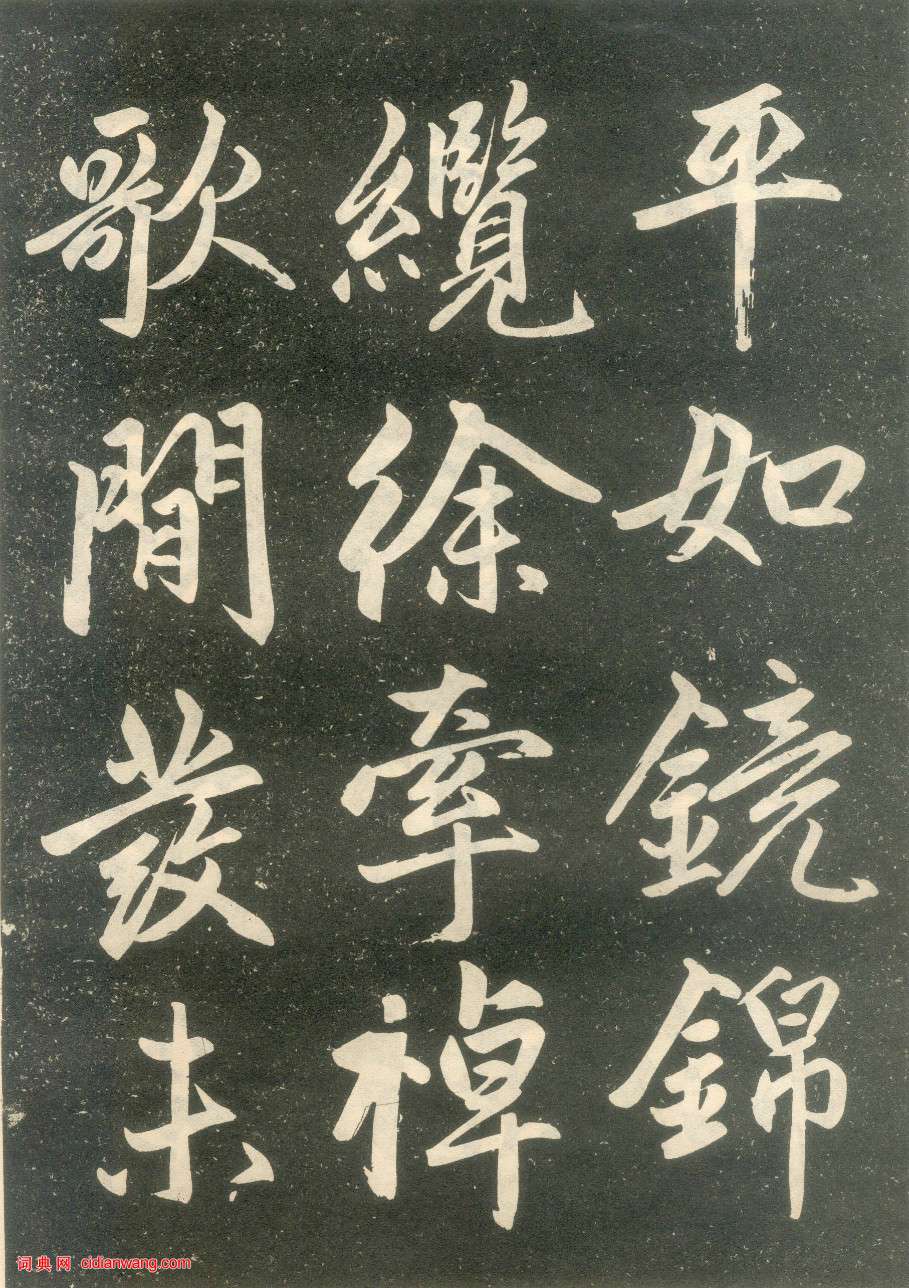 平如鏡錦
纜徐牽棹
歌閒發未
词典网 cidianwang.com